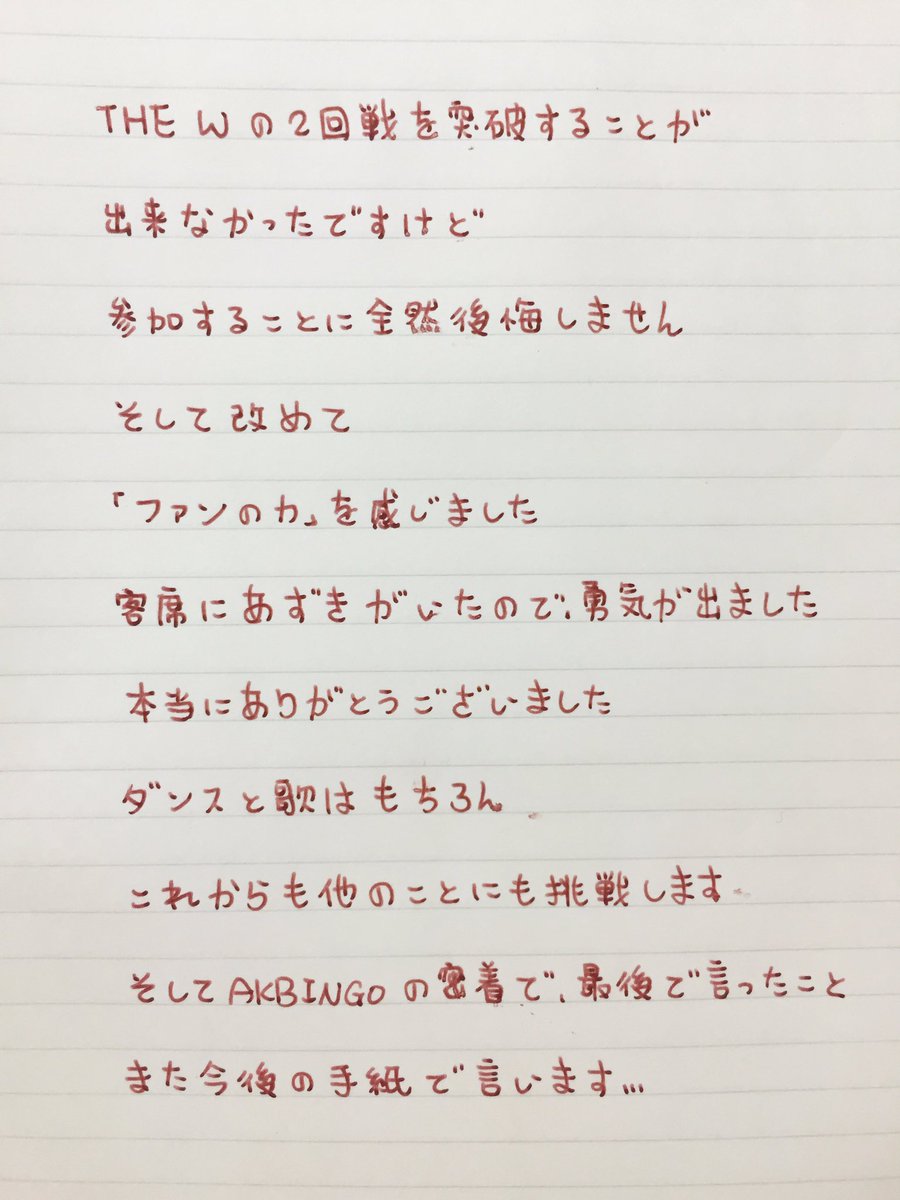 THE Wの2回戦を突破することが
出来なかったですけど
参加することに全然後悔しません
そして改めて
「ファンの力」を感じました
客席にあずきがいたので、勇気が出ました
本当にありがとうございました
ダンスと歌はもちろん
これからも他のことにも挑戦します
そしてAKBINGOの密着で、最後で言ったこと
また今後の手紙で言います...